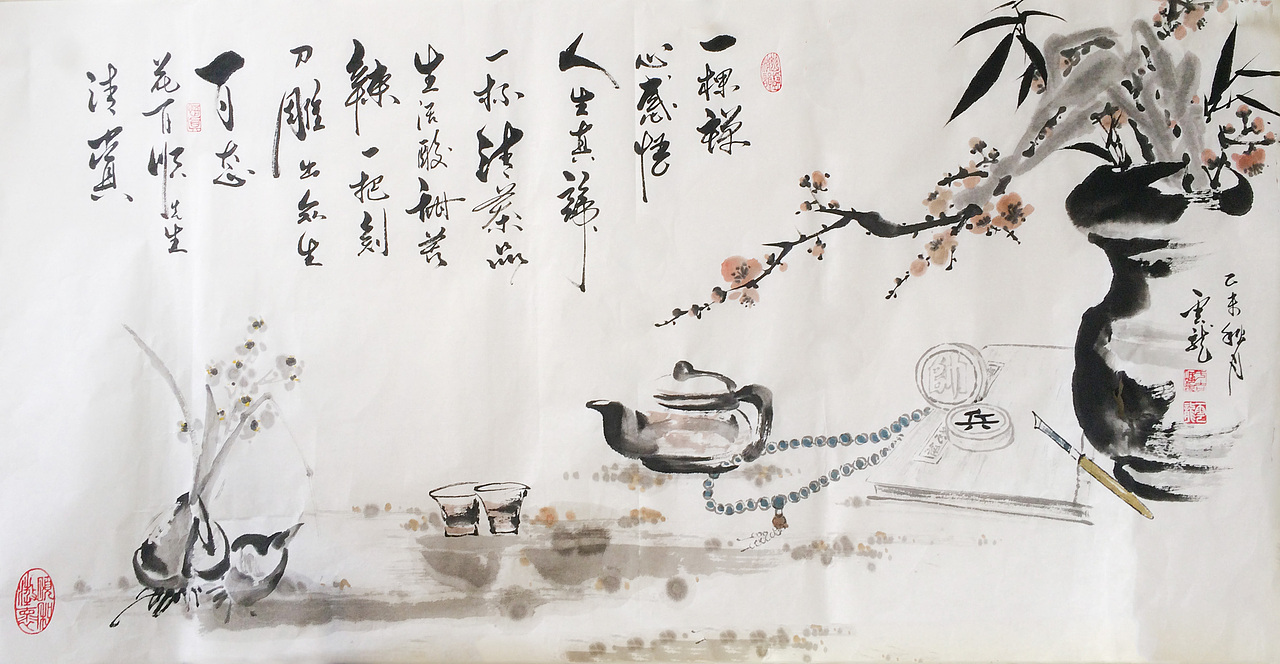 一棵禪
心感悟
人生真諦
一杯清茶品
生活酸甜苦
辣一把刻
刀雕出众生
百态
花百順先生
清賞
乙未秋月
雲龍
帥
兵